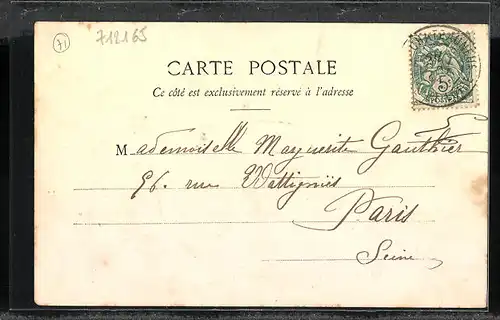 71
712165
CARTE POSTALE
Ce côté est exclusivement réservé à l'adresse
Mademoiselle Marguerite Gauthier
56. rue Wattignies
Paris
Seine
5